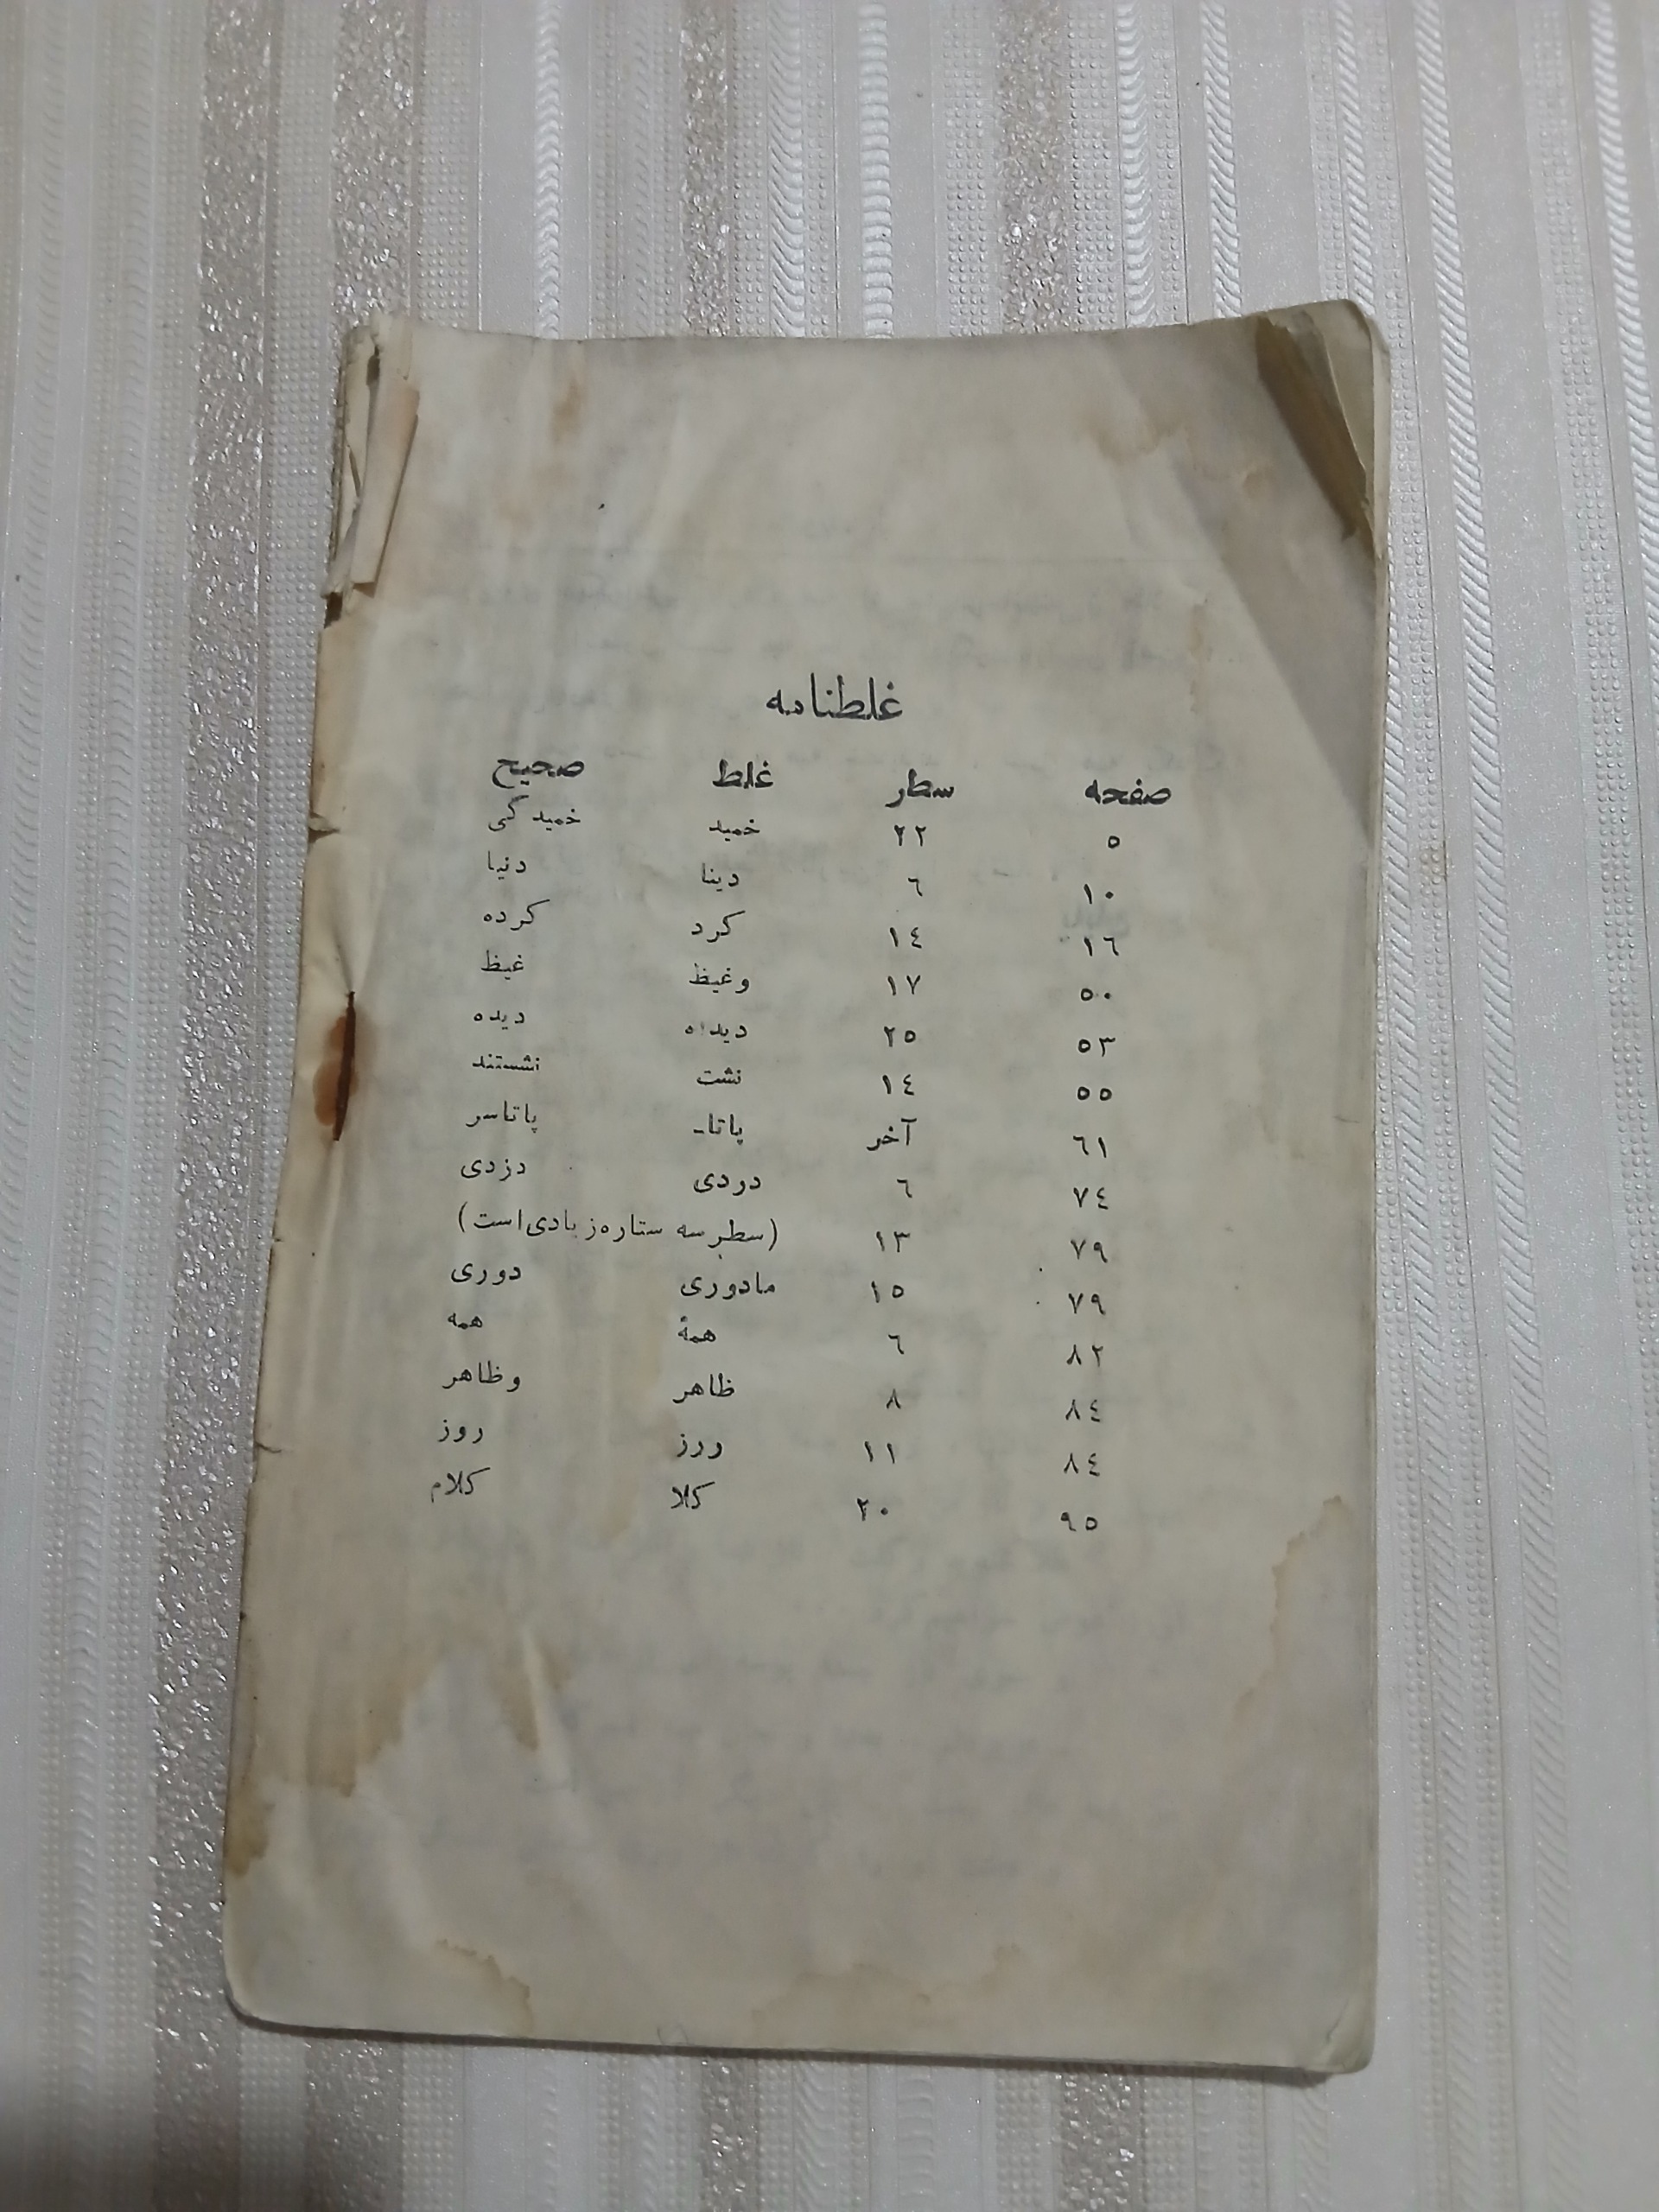 غلطنامه
صفحه سطر غلط صحیح
۵ ۲۲ خمید خمیدگی
۱۰ ٦ دینا دنیا
۱٦ ۱٤ کرد کرده
۵۰ ۱۷ وغیظ غیظ
۵۳ ۲۵ دیداه دیده
۵۵ ۱٤ نشت نشستند
٦۱ آخر پاتا- پاتاسر
۷٤ ٦ دردی دزدی
۷۹ ۱۳ (سطر سه ستاره زیادی است)
۷۹ ۱۵ مادوری دوری
۸۲ ٦ همهٔ همه
۸٤ ۸ ظاهر وظاهر
۸٤ ۱۱ ورز روز
۹۵ ۲۰ کلا کلام